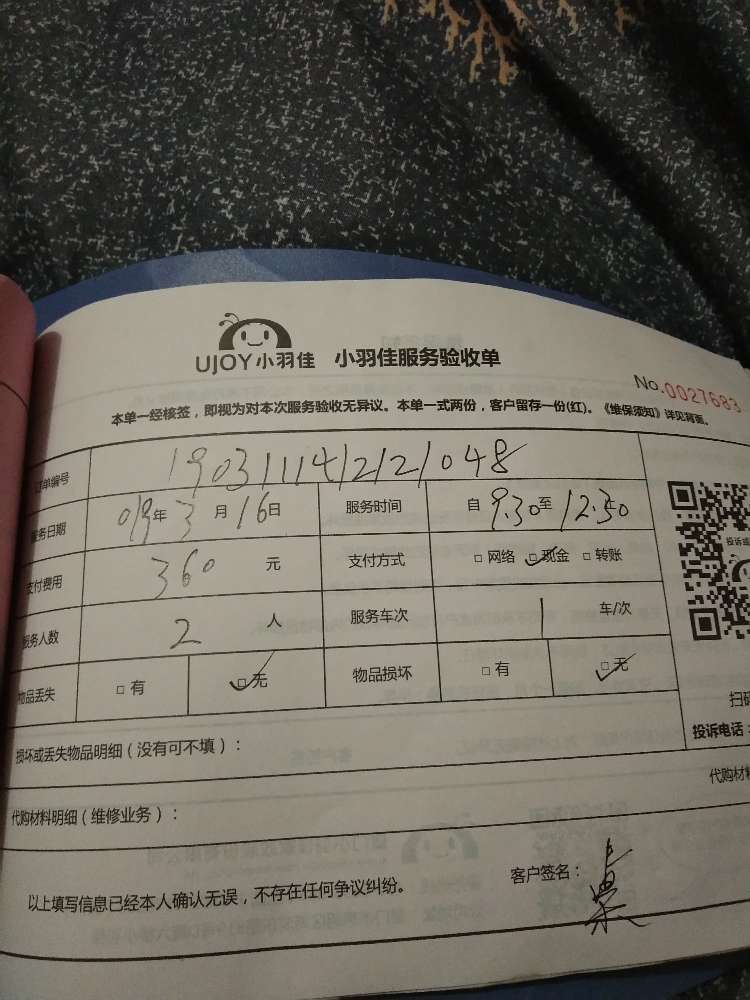 UJOY小羽佳 小羽佳服务验收单
No.0027683
本单一经核签，即视为对本次服务验收无异议。本单一式两份，客户留存一份(红)。《维保须知》详见背面。
订单编号 1903111412121048
服务日期 019年3月16日 服务时间 自9.30至12.30
支付费用 360 元 支付方式 □网络 □现金 □转账
服务人数 2 人 服务车次 1 车/次
物品丢失 □有 □无 物品损坏 □有 □无
扫码
投诉电话：
损坏或丢失物品明细（没有可不填）：
代购材料
代购材料明细（维修业务）：
以上填写信息已经本人确认无误，不存在任何争议纠纷。 客户签名：